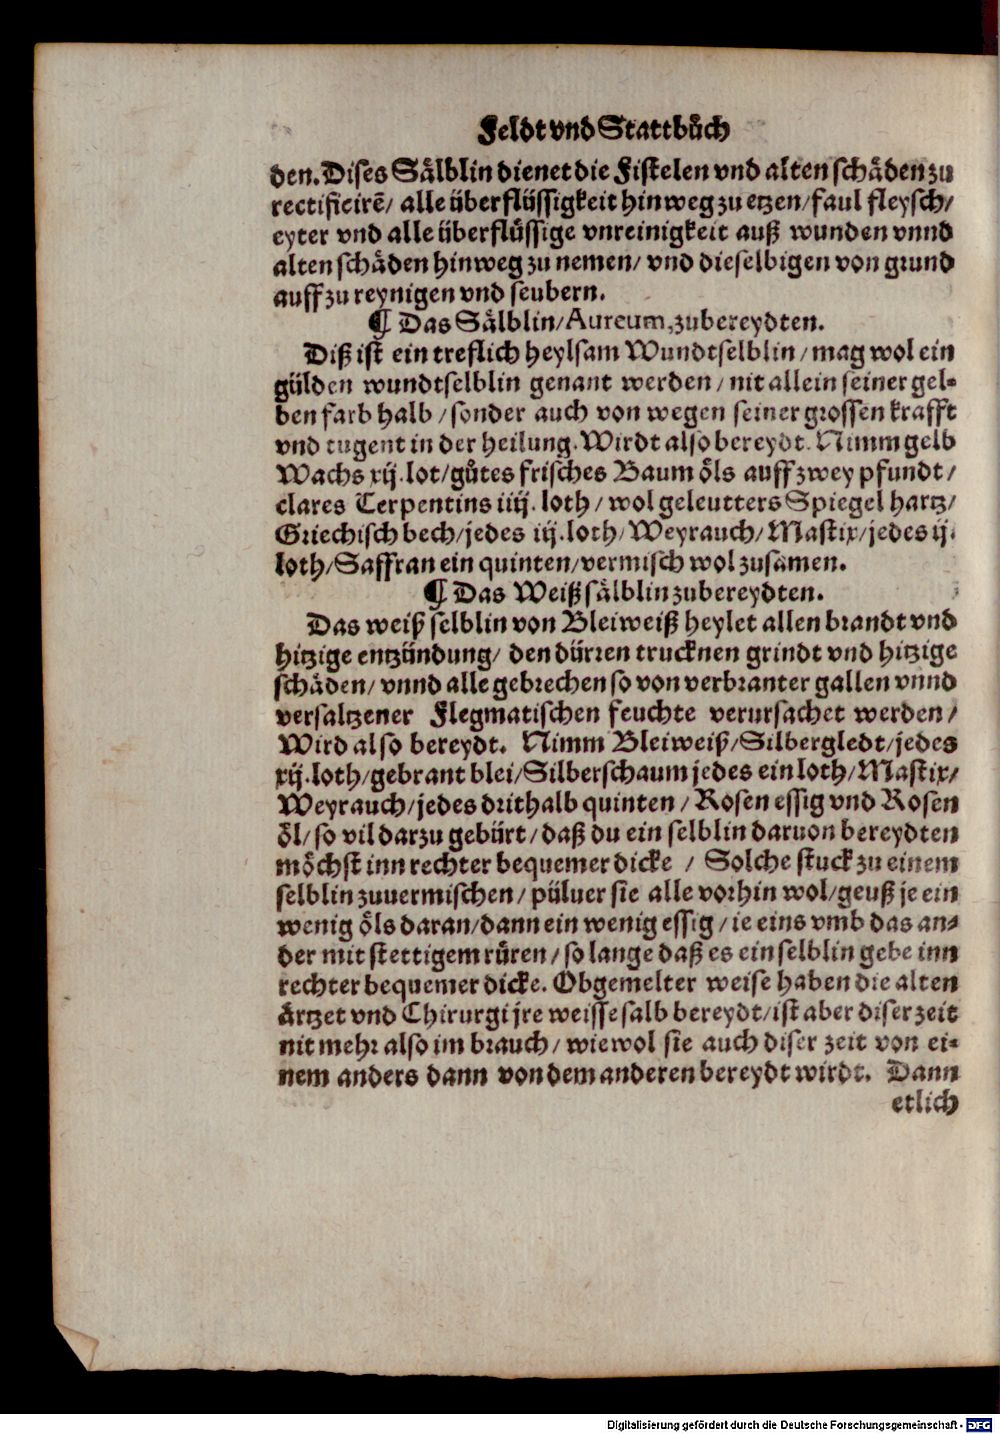 Feldt vnd Stattbůch
den. Dises Sälblin dienet die Fistelen vnd alten schäden zu
rectificirē/ alle überflüssigkeit hinweg zu etzen/ faul fleysch/
eyter vnd alle überflüssige vnreinigkeit auß wunden vnnd
alten schäden hinweg zu nemen/ vnd dieselbigen von grund
auff zu reynigen vnd seubern.
¶ Das Sälblin/ Aureum, zubereydten.
Diß ist ein treflich heylsam Wundtselblin/ mag wol ein
gülden wundtselblin genant werden/ nit allein seiner gel-
ben farb halb/ sonder auch von wegen seiner grossen krafft
vnd tugent in der heilung. Wirdt also bereydt. Nimm gelb
Wachs xij. lot/ gůtes frisches Baum öls auff zwey pfundt/
clares Terpentins iiij. loth/ wol geleutters Spiegel hartz/
Griechisch bech/ jedes iij. loth/ Weyrauch/ Mastix/ jedes ij.
loth/ Saffran ein quinten/ vermisch wol zusamen.
¶ Das Weiß sälblin zubereydten.
Das weiß selblin von Bleiweiß heylet allen brandt vnd
hitzige entzündung/ den dürren trucknen grindt vnd hitzige
schäden/ vnnd alle gebrechen so von verbranter gallen vnnd
versaltzener Flegmatischen feuchte verursachet werden/
Wird also bereydt. Nimm Bleiweiß/ Silbergledt/ jedes
xij. loth/ gebrant blei/ Silberschaum jedes ein loth/ Mastix/
Weyrauch/ jedes drithalb quinten/ Rosen essig vnd Rosen
öl/ so vil darzu gebürt/ daß du ein selblin daruon bereydten
möchst inn rechter bequemer dicke / Solche stuck zu einem
selblin zuuermischen/ pülver sie alle vorhin wol/ geuß je ein
wenig öls daran/ dann ein wenig essig/ ie eins vmb das an-
der mit stettigem rüren/ so lange daß es ein selblin gebe inn
rechter bequemer dicke. Obgemelter weise haben die alten
ärtzet vnd Chirurgi jre weisse salb bereydt/ ist aber diser zeit
nit mehr also im brauch/ wiewol sie auch diser zeit von ei-
nem anders dann von dem anderen bereydt wirdt. Dann
etlich
Digitalisierung gefördert durch die Deutsche Forschungsgemeinschaft - DFG